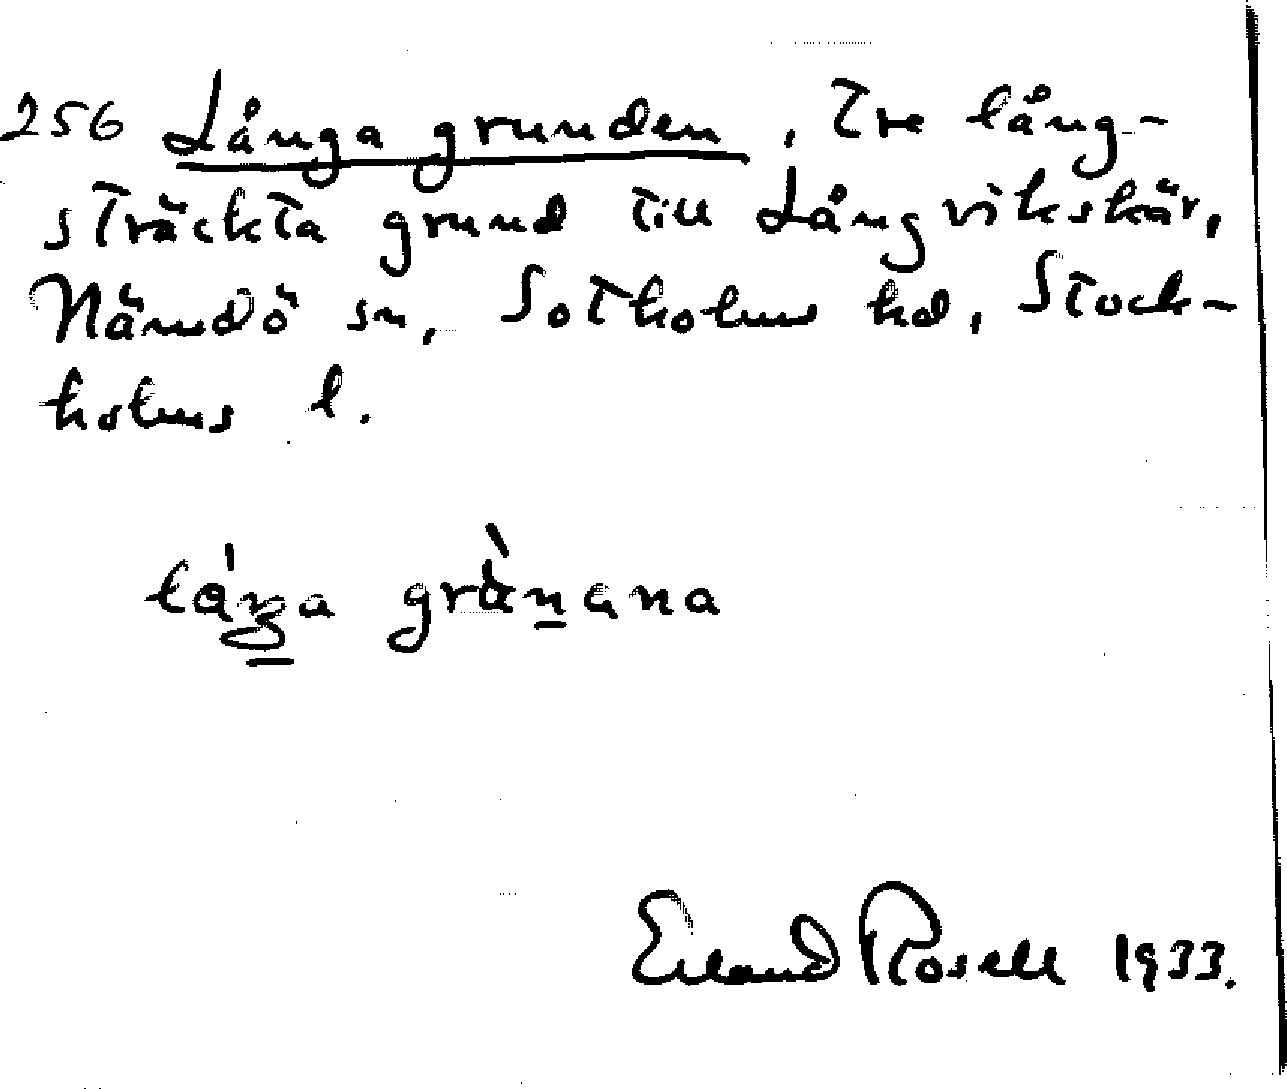 256 Långa grunden, Tre lång-
sträckta grund till Långvikskär,
Nämdö sn, Sotholms hd, Stock-
holms l.
Erland Rosell 1933.